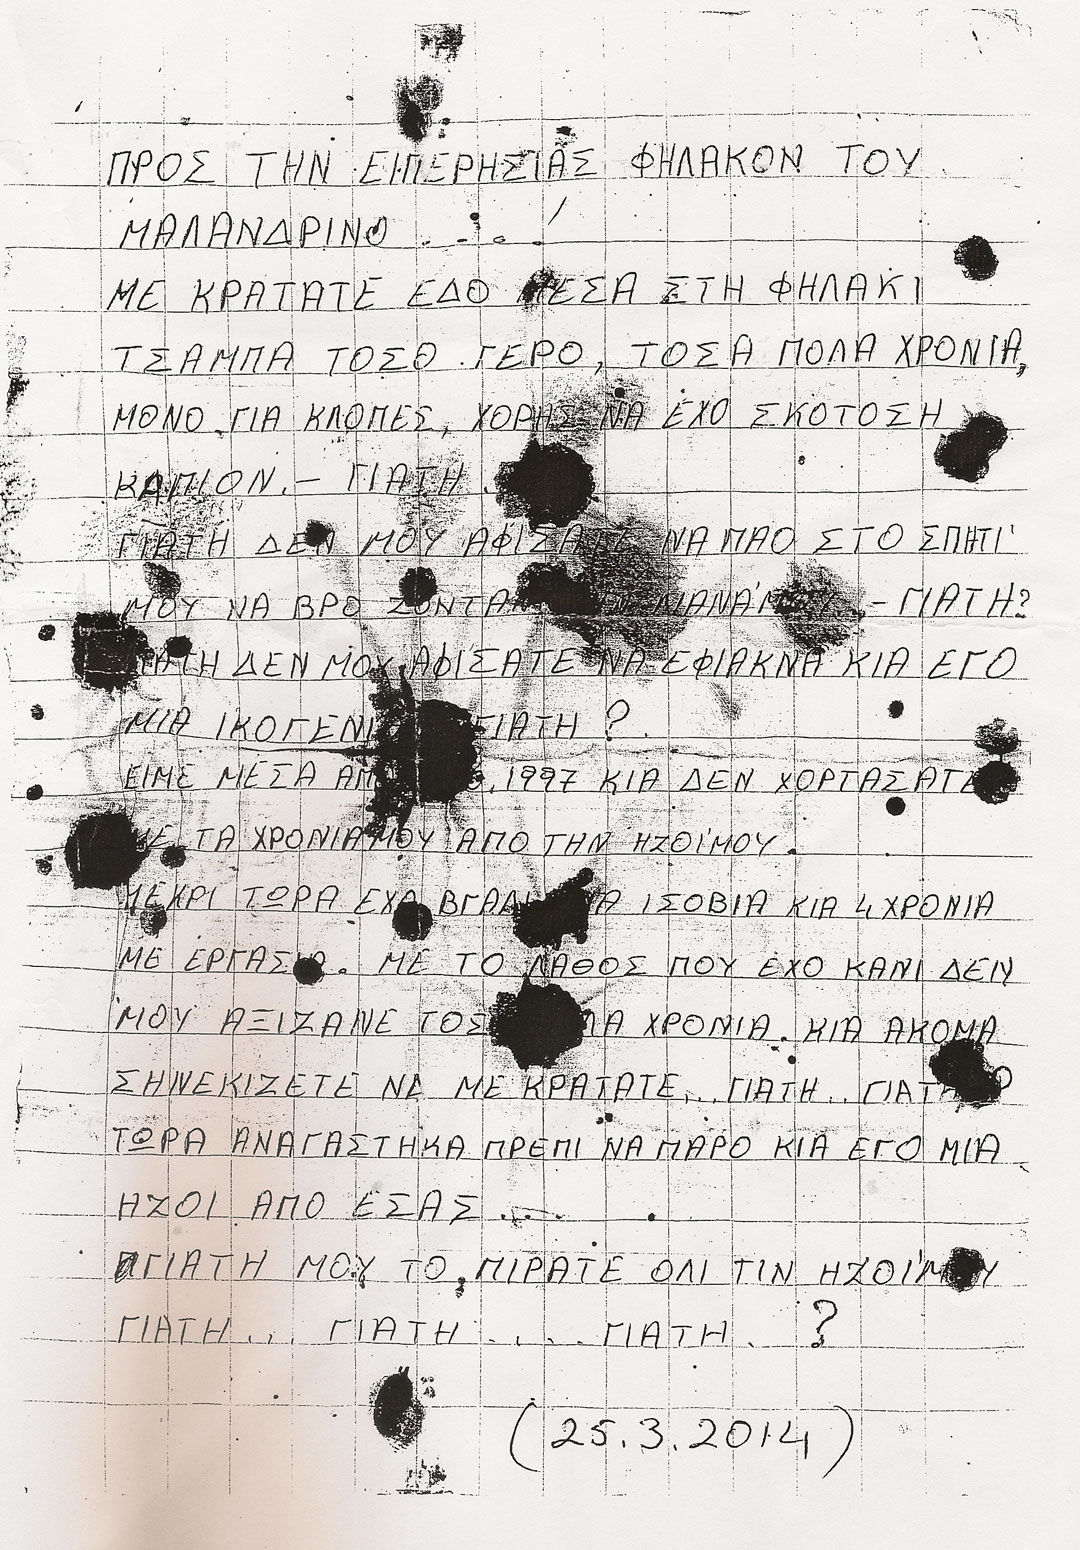 ΠΡΟΣ ΤΗΝ ΕΙΠΕΡΗΣΙΑΣ ΦΗΛΑΚΟΝ ΤΟΥ
ΜΑΛΑΝΔΡΙΝΟ
ΜΕ ΚΡΑΤΑΤΕ ΕΔΟ ΜΕΣΑ ΣΤΗ ΦΗΛΑΚΙ
ΤΣΑΜΠΑ ΤΟΣΟ ΓΕΡΟ, ΤΟΣΑ ΠΟΛΑ ΧΡΟΝΙΑ,
ΜΟΝΟ ΓΙΑ ΚΛΟΠΕΣ, ΧΟΡΗΣ ΝΑ ΕΧΟ ΣΚΟΤΟΣΗ
ΚΑΠΙΟΝ.- ΓΙΑΤΗ
ΓΙΑΤΗ ΔΕΝ ΜΟΥ ΑΦΙΣΑΤΕ ΝΑ ΠΑΟ ΣΤΟ ΣΠΗΤΙ
ΜΟΥ ΝΑ ΒΡΟ - ΓΙΑΤΗ?
ΓΙΑΤΗ ΔΕΝ ΜΟΥ ΑΦΙΣΑΤΕ ΝΑ ΕΦΙΑΚΝΑ ΚΙΑ ΕΓΟ
ΜΙΑ ΓΙΑΤΗ ?
ΕΙΜΕ ΜΕΣΑ 1997 ΚΙΑ ΔΕΝ ΧΟΡΤΑΣΑΤΕ
ΜΕ ΤΑ ΧΡΟΝΙΑ ΜΟΥ ΑΠΟ ΤΗΝ ΗΖΟΙ ΜΟΥ.
ΜΕΧΡΙ ΤΩΡΑ ΕΧΑ ΙΣΟΒΙΑ ΚΙΑ 4 ΧΡΟΝΙΑ
ΜΕ ΕΡΓΑΣΙΑ. ΜΕ ΤΟ ΛΑΘΟΣ ΠΟΥ ΕΧΟ ΚΑΝΙ ΔΕΝ
ΜΟΥ ΑΞΙΖΑΝΕ ΧΡΟΝΙΑ. ΚΙΑ ΑΚΟΜΑ
ΣΗΝΕΚΙΖΕΤΕ ΝΑ ΜΕ ΚΡΑΤΑΤΕ... ΓΙΑΤΗ.. ΓΙΑΤΗ
ΤΩΡΑ ΑΝΑΓΑΣΤΗΚΑ ΠΡΕΠΙ ΝΑ ΠΑΡΟ ΚΙΑ ΕΓΟ ΜΙΑ
ΗΖΟΙ ΑΠΟ ΕΣΑΣ ....
ΓΙΑΤΗ ΜΟΥ ΤΟ ΠΙΡΑΤΕ ΟΛΙ ΤΙΝ ΗΖΟΙ ΜΟΥ
ΓΙΑΤΗ... ΓΙΑΤΗ .... ΓΙΑΤΗ. ?
(25.3.2014)